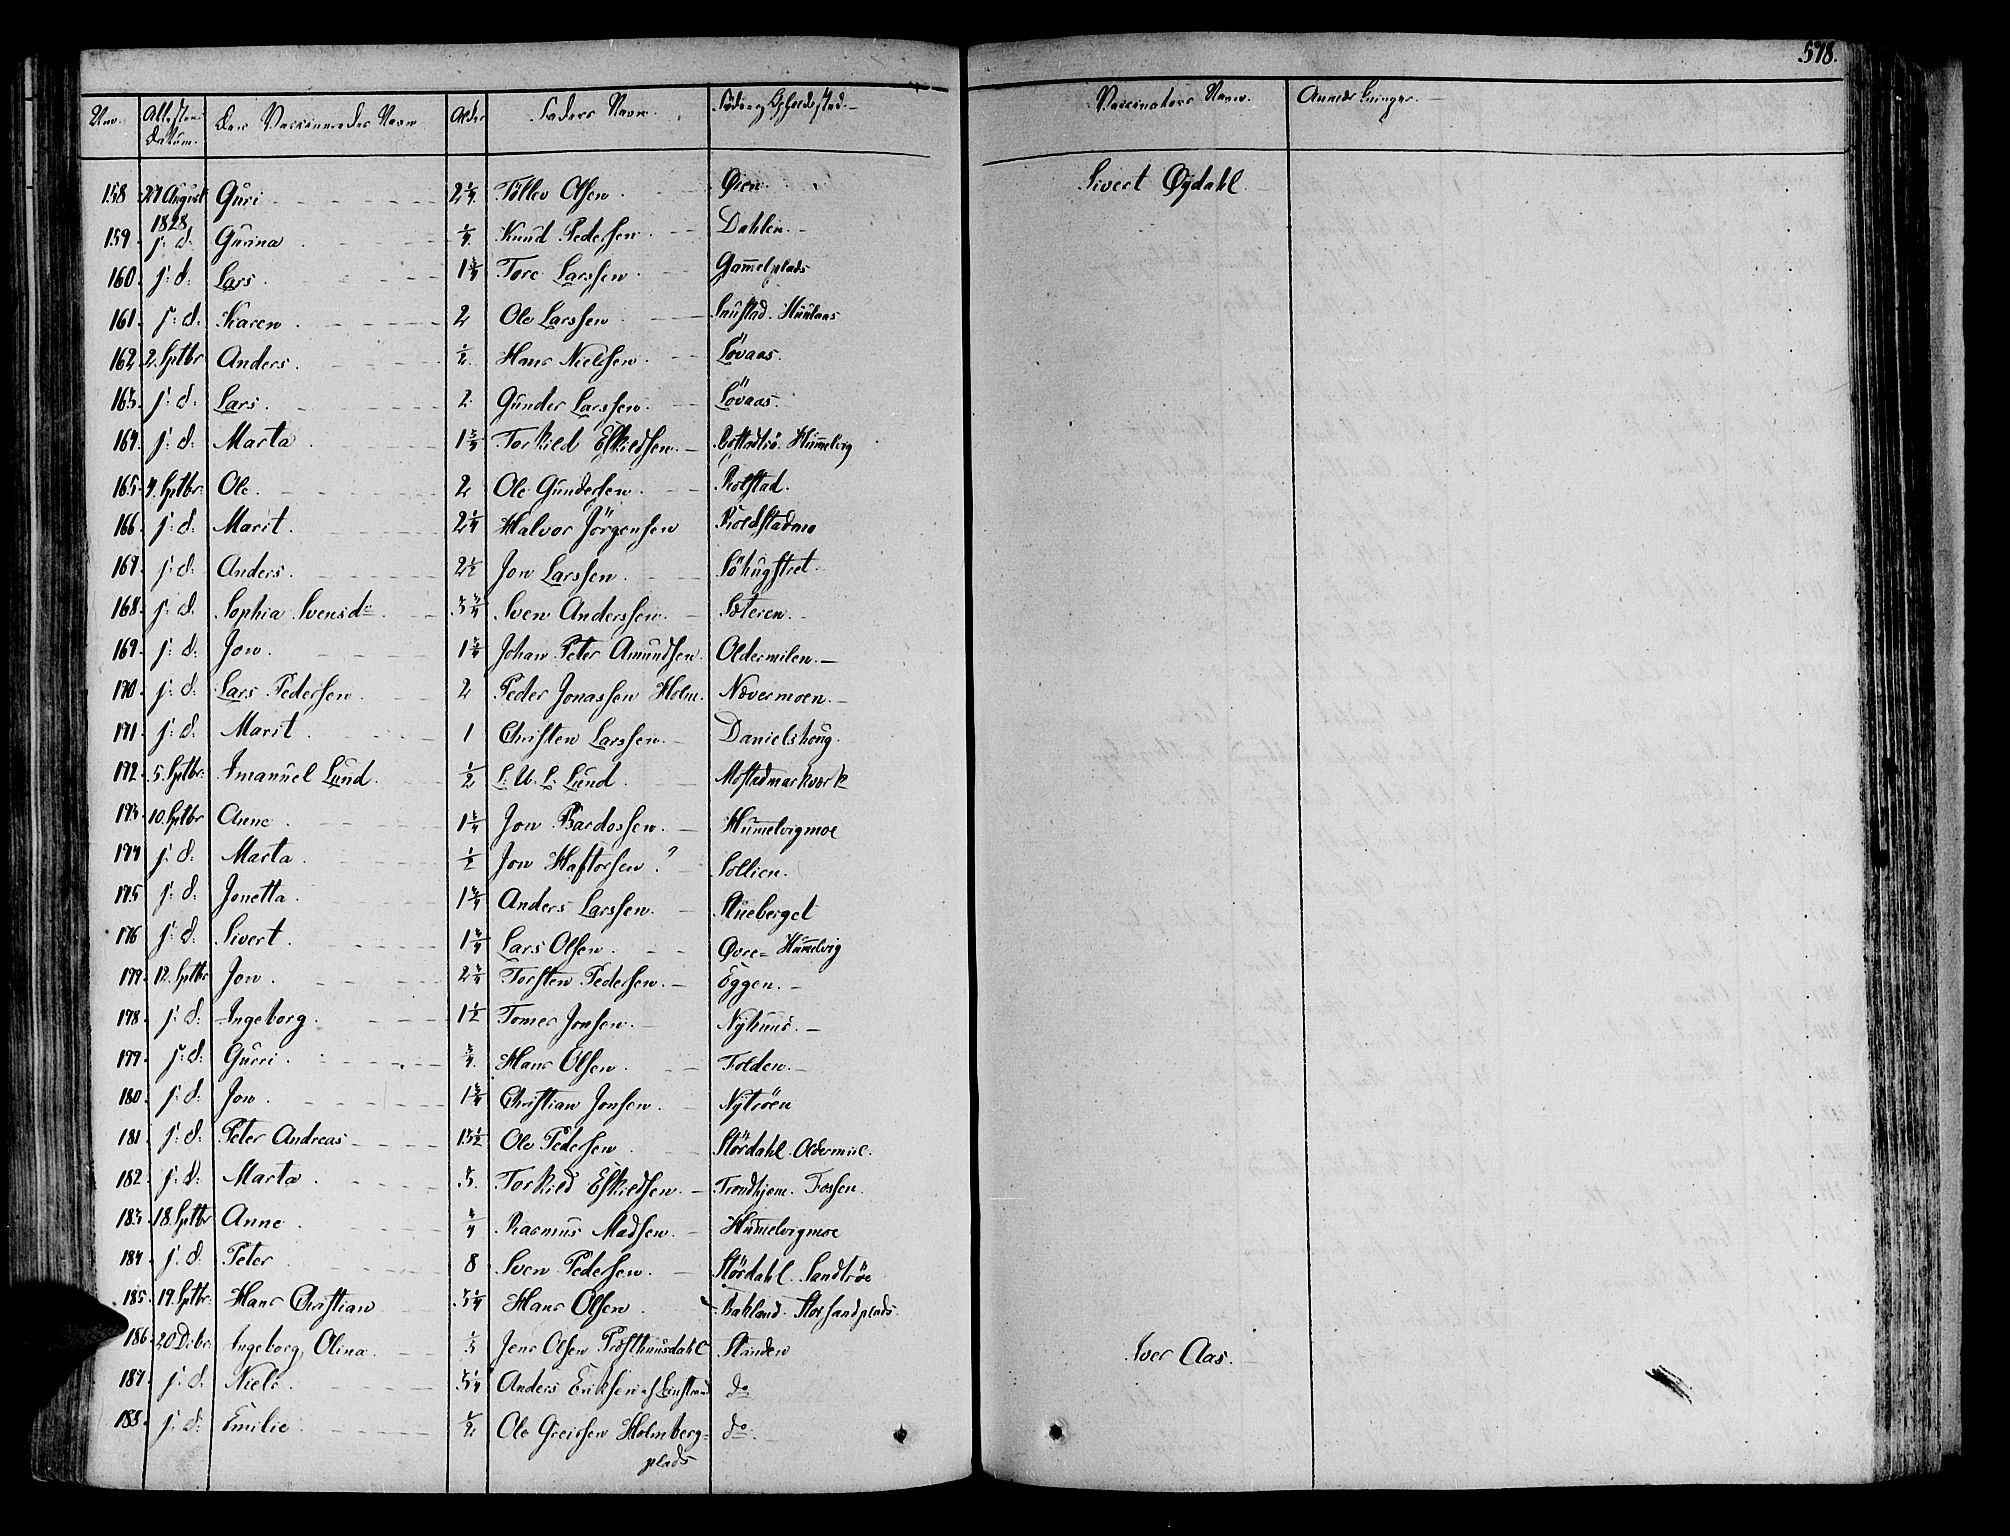 578.
Attestens Datum. Den Vaccineredes Navn Alder Faders Navn. Føde- og Opholdssted.
Vaccinateurs Navn. Anmærkninger.
158 27 August 1828 Guri 2 1/4 Tollev Olsen Øien Sivert Øydahl
159. j: d: Gurina Knud Pedersen Dahlen.
160. j: d: Lars 1 3/4 Tore Larssen Gammelplads
161. j: d: Karen 2 Ole Larssen
162. 2. Sptbr Anders. 1/2 Hans Nielssen Løvaas.
163. j: d: Lars. 2 Gunder Larssen. Løvaas.
164. j: d: Marta 1 3/4 Torkild Eskildsen. Hummelvig
165. 4. Sptbr: Ole. 2 Ole Gundersen Rolstad.
166. j: d: Marit. 2 1/4 Halvor Jörgensen Roldstadmo
167. j: d: Anders. 2 1/2 Jon Larssen.
168. j: d: Sophia Svensd:r 3 3/4 Sven Anderssen. Sæteren.
169. j: d: Jon. 1 3/4 Johan Peter Amundsen. Oldermilen.
170. j: d: Lars Pedersen 2 Peder Jonassen Holm. Nævermoen.
171. j: d: Marit 1 Christen Larssen. Danielshoug.
172. 5. Sptbr: Imanuel Lund. 1/2 L. U. L. Lund Mostadmarkværk
173. 10. Sptbr Anne 1 3/4 Jon Bardossen. Hummelvigmoe
174. j: d: Marta. 1/2 Jon Haftorsen ? Sollien.
175. j: d: Jonetta. 1 3/4 Anders Larssen. Stueberget
176 j: d: Sivert. 1 3/4 Lars Olsen Øvre= Hummelvig
177. 12. Sptbr Jon. 2 3/4 Torsten Pedersen. Eggen.
178. j: d: Ingeborg. 1 1/2 Tomes Jonsen. Nÿhuus.
179. j: d: Gurri. 3/4 Hans Olsen Folden.
180. j: d: Jon 1 3/4 Christian Jonsen. Nÿtröen
181. j: d: Peter Andreas 13 1/2 Ole Pedersen Stördahl. Oldermiil.
182. j: d: Marta 3. Torkild Eskildsen. Trondhjem. Fossen.
183. 18. Sptbr Anne 3/4 Rasmus Madsen. Hummelvigmoe
184. j: d: Peter 8 Sven Pedersen. Stördahl. Sandtröe
185. 19. Sptbr: Hans Christian 3 1/4 Hans Olsen Bakland. Storsandplads.
186. 20 Decbr: Ingeborg Olina. Jens Olsen Præsthuusdahl Standen Iver Aas.
187. j: d: Niels. 3 1/4 Anders Eriksen af do
188. j: d: Emilie 1/2 Ole Greissen Holmberg= do.
plads